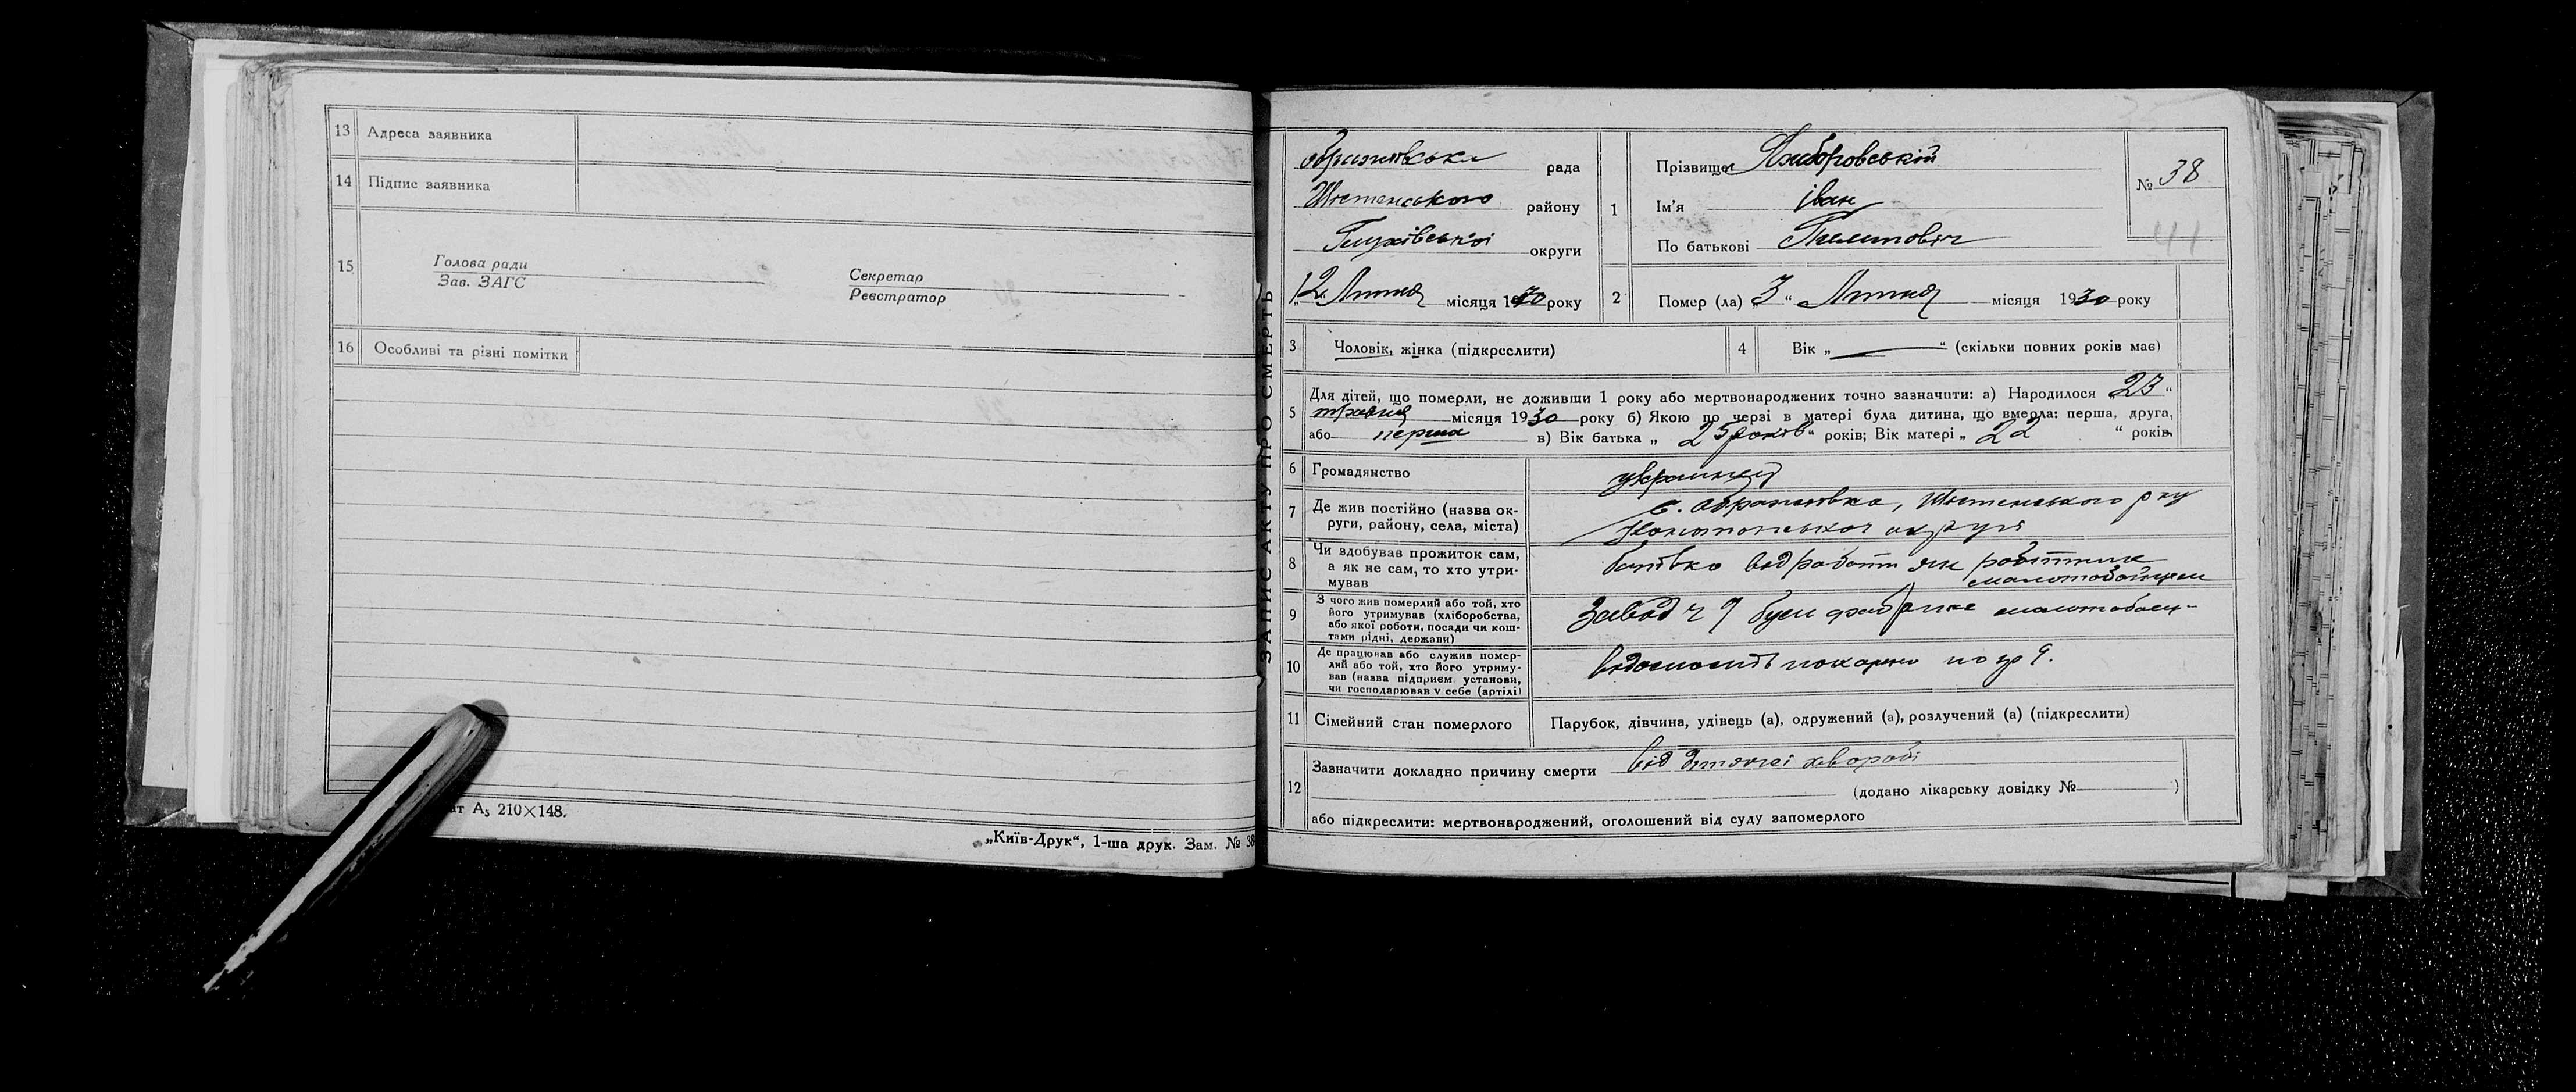 13 Адреса заявника
14 Підпис заявника
15 Голова ради
Зав. ЗАГС
Секретар
Реєстратор
16 Особливі та різні помітки
ат А5 210×148.
„Київ-Друк“, 1-ша друк. Зам. № 38
ЗАПИС АКТУ ПРО СМЕРТЬ
рада
Шостенського району
Глухівської округи
12 Липня місяця 1930 року
1 Прізвище
Ім’я Іван
По батькові
№ 38
41
2 Помер (ла) „3“ Липня місяця 1930 року
3 Чоловік, жінка (підкреслити)
4 Вік „ — “ (скільки повних років має)
5 Для дітей, що померли, не доживши 1 року або мертвонароджених точно зазначити: а) Народилося 23 “
травня місяця 1930 року б) Якою по черзі в матері була дитина, що вмерла: перша, друга,
або перша в) Вік батька „ 25 років “ років; Вік матері „ 22 “ років.
6 Громадянство украинец
7 Де жив постійно (назва округи, району, села, міста)
с. Ображиевка, Шостенського р ну
Конотопської округи
8 Чи здобував прожиток сам, а як не сам, то хто утримував
батько від работи як робітник
молотобойцем
9 З чого жив померлий або той, хто його утримував (хліборобства, або якої роботи, посади чи коштами рідні, держави)
Завод ч 9
10 Де працював або служив померлий або той, хто його утримував (назва підприєм. установи, чи господарював у себе (артілі)
11 Сімейний стан померлого
Парубок, дівчина, удівець (а), одружений (а), розлучений (а) (підкреслити)
12 Зазначити докладно причину смерти від дитячої хвороби
(додано лікарську довідку № )
або підкреслити: мертвонароджений, оголошений від суду запомерлого